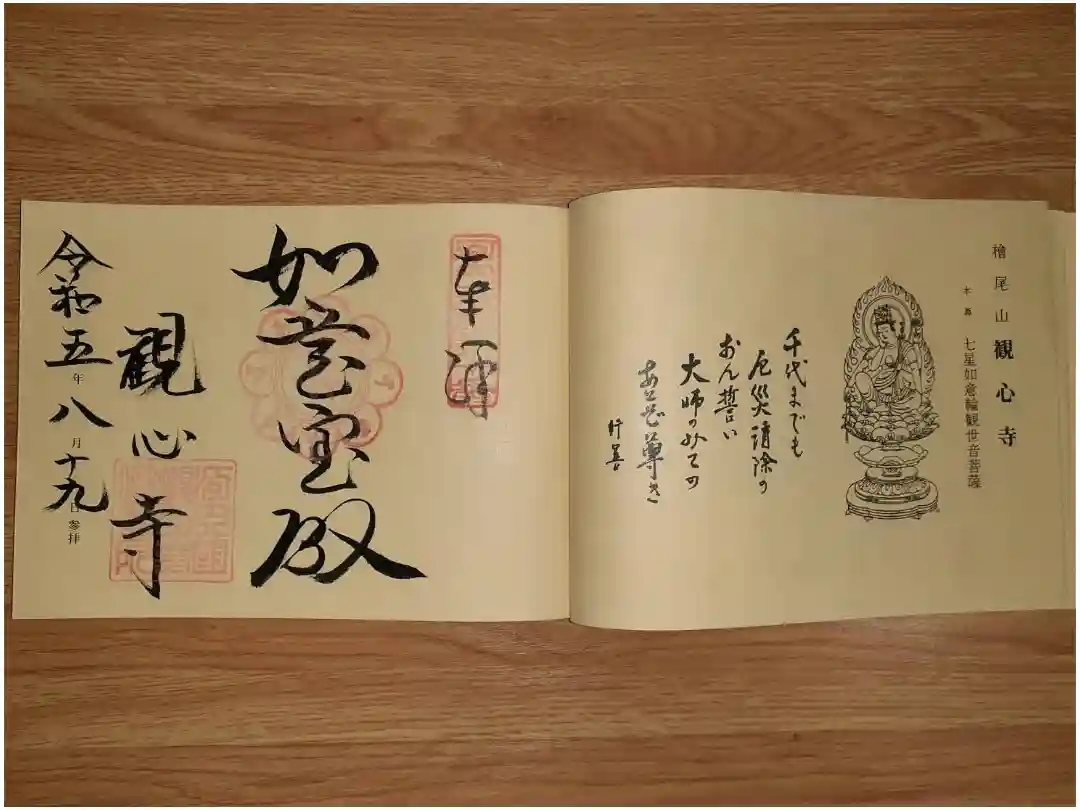 檜尾山 観心寺
本尊 七星如意輪観世音菩薩
千代までも
厄災消除の
おん誓い
大師のみての
あとぞ尊き
奉拝
如意宝殿
観心寺
令和五年八月十九日参拝